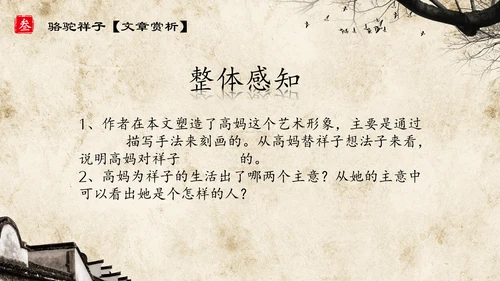 叁 骆驼祥子【文章赏析】
整体感知
1、作者在本文塑造了高妈这个艺术形象，主要是通过
描写手法来刻画的。从高妈替祥子想法子来看，
说明高妈对祥子 的。
2、高妈为祥子的生活出了哪两个主意？从她的主意中
可以看出她是个怎样的人？